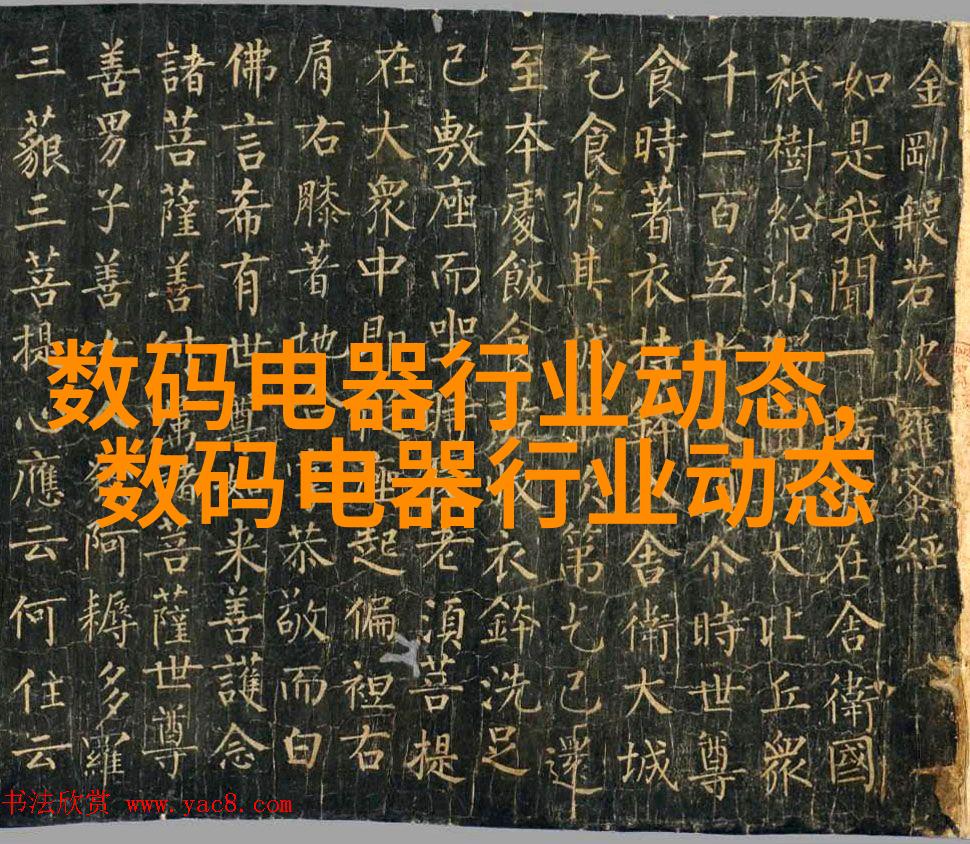 金剛般若波羅蜜經
如是我聞一時在舍衛國
祇樹給孤大比丘衆
千二百五十尒時世尊
食時著衣持舍衛大城
乞食於其城第乞已還
至本處飯食衣鉢洗足
已敷座而坐老須菩提
在大衆中即座起偏袒右
肩右膝著地恭敬而白
佛言希有世尊来善護念
諸菩薩善付諸菩薩世尊
善男子善女阿耨多羅
三藐三菩提心應云何住云
数码电器行业动态,
数码电器行业动态
书法欣赏 www.yac8.com